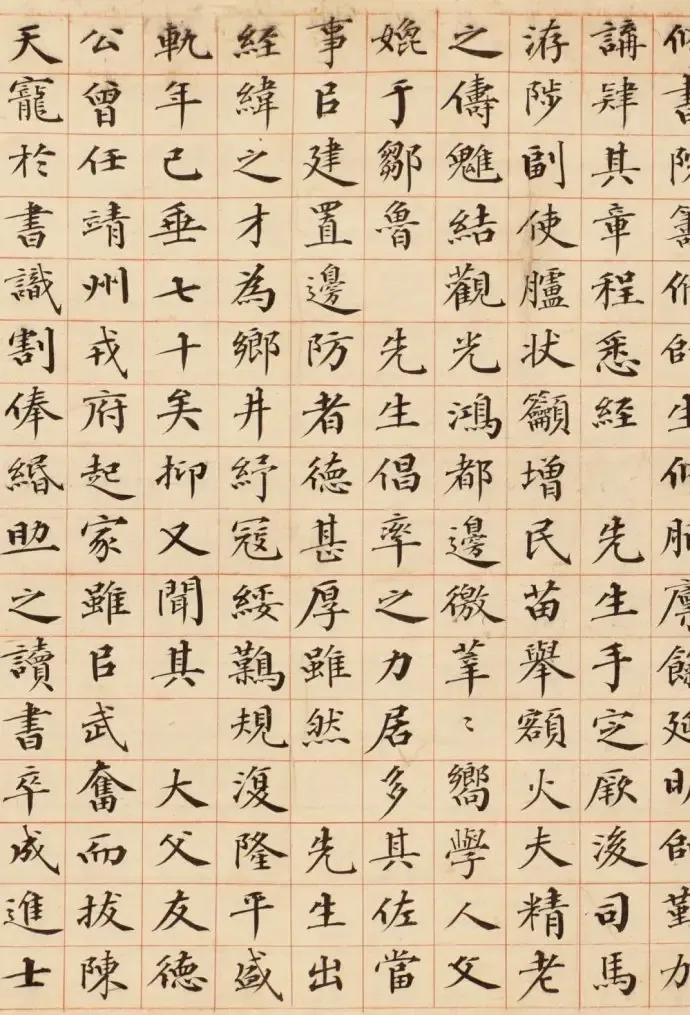 書院籌生延明師勤力
講肄其章程悉經 先生手定厥後司馬
游陟副使臚狀籲增民苗舉額火夫精老
之儔魋結觀光鴻都邊徼莘〻嚮學人文
媲于鄒魯 先生倡率之力居多其佐當
事㠯建置邊防者德甚厚雖然 先生出
經緯之才為鄉井紓寇綏𪄿規復隆平盛
軌年已垂七十矣抑又聞其 大父友德
公曾任靖州戎府起家雖㠯武奮而拔陳
天寵於書識割俸緡助之讀書卒成進士